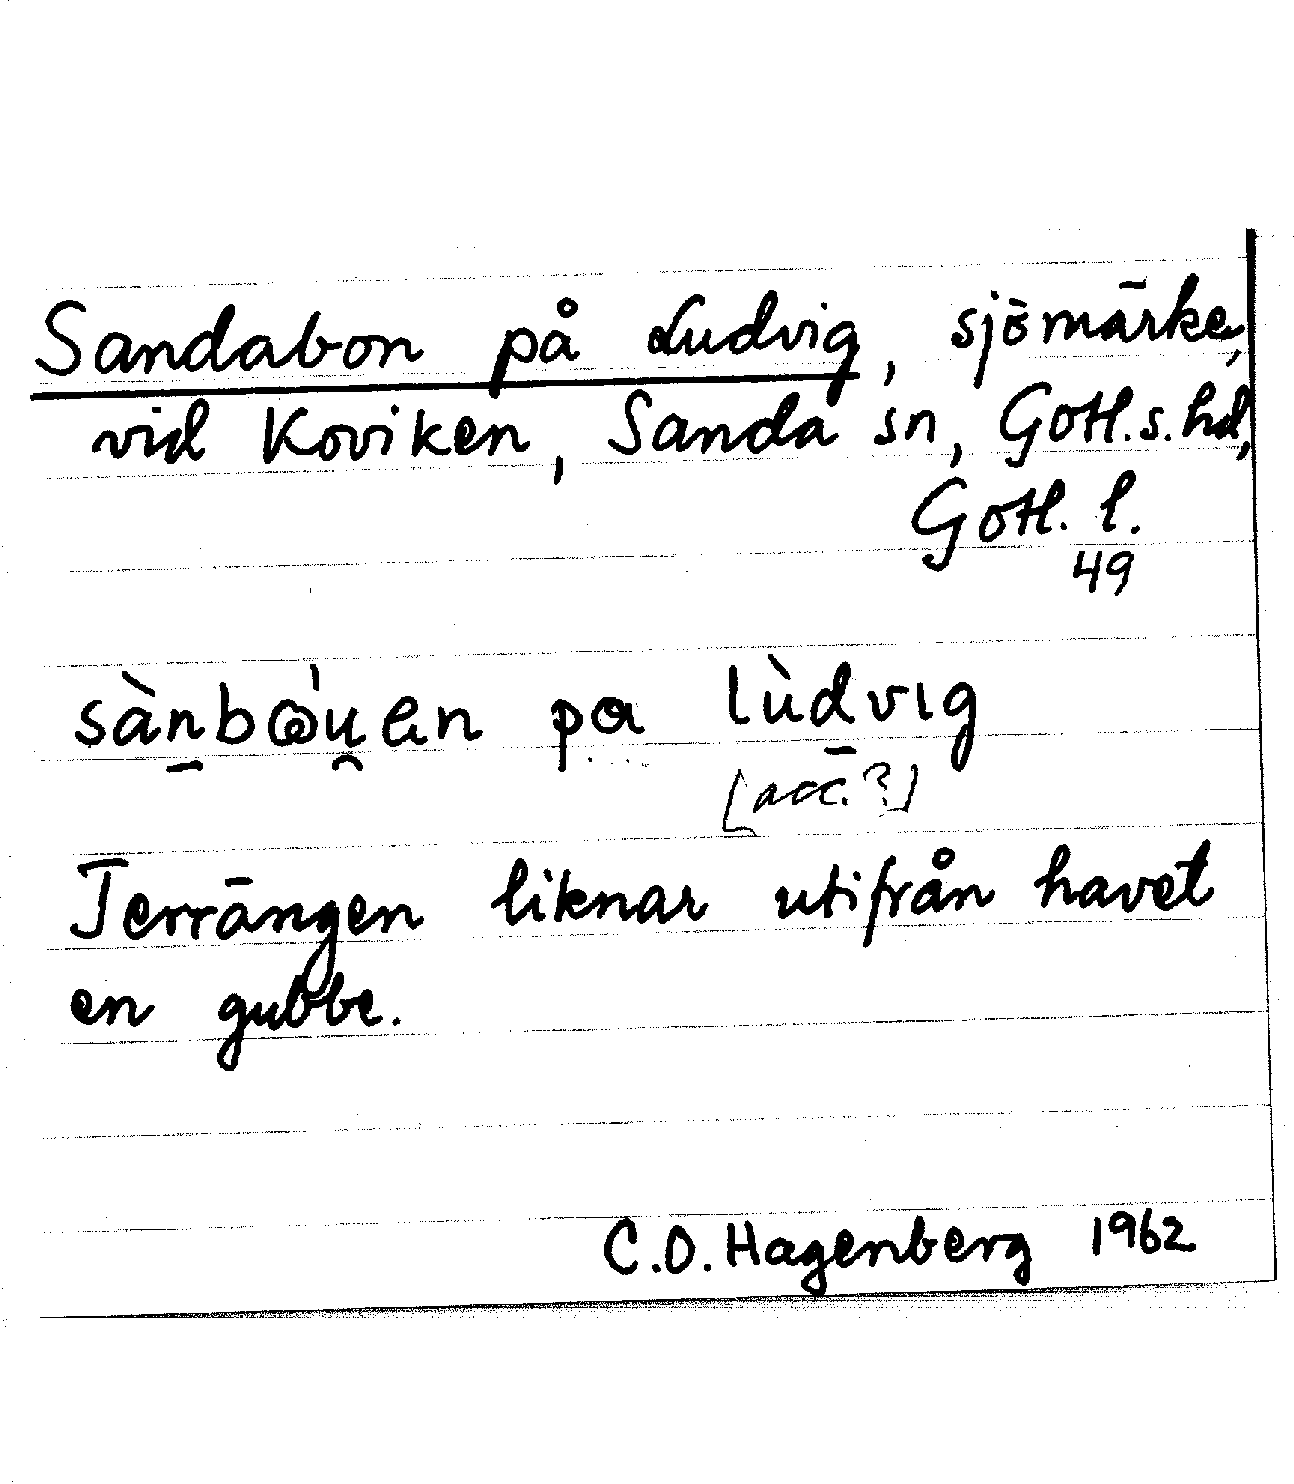 Sandabon på Ludvig, sjömärke,
vid Koviken, Sanda sn, Gotl.s.hd,
Gotl. l.
49
sànbɷ̀u̯ən pɑ lùdvıg
[acc.?]
Terrängen liknar utifrån havet
en gubbe.
C.O. Hagenberg 1962